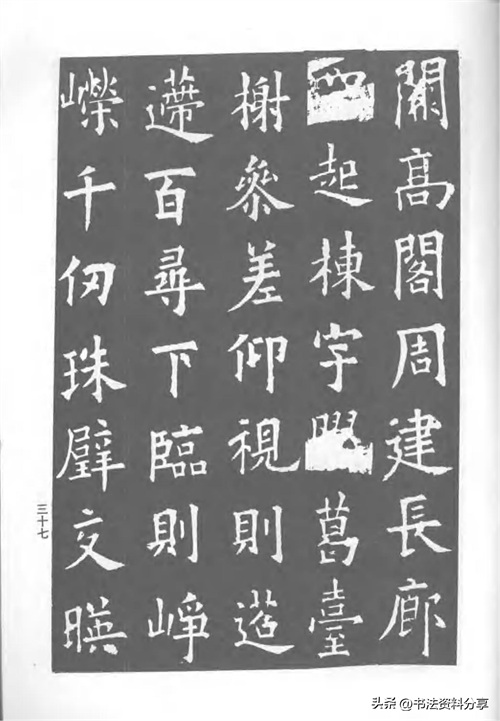 闕高閣周建長廊
四起棟宇葛臺
榭參差仰視則迢
遰百尋下臨則崢
嶸千仞珠璧交暎
三十七
头条 @书法资料分享